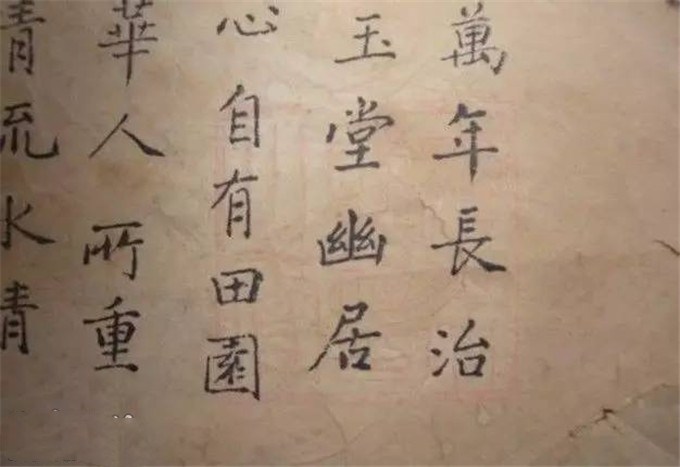 萬年長治
玉堂幽居
心自有田園
華人所重
青流水青